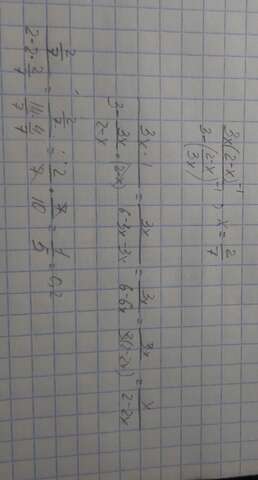 3x(2-x)⁻¹ / 3-((2-x)/3x)⁻¹ , x = 2/7
3x·1 / (3- 3x/(2-x) ·(2-x)) = 3x/(6-3x-3x) = 3x/(6-6x) = 3x/(3(2-2x)) = x/(2-2x)
(2/7) / (2-2·2/7) = (2/7) / (14/7-4/7) = 2/7 · 7/10 = 1/5 = 0,2